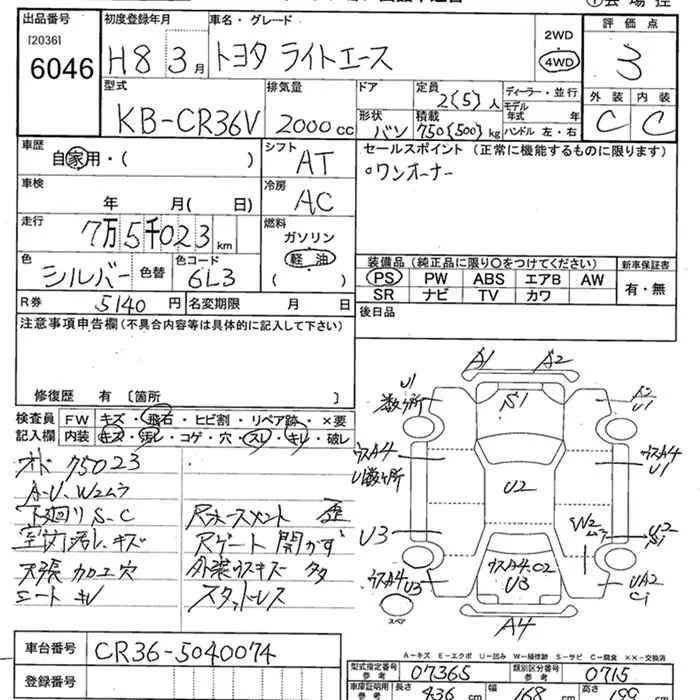 出品番号
[2036]
6046
初度登録年月
H8 3月
車名・グレード
トヨタ ライトエース
2WD
4WD
評価点
3
外装 内装
C C
型式
KB-CR36V
排気量
2000cc
ドア
形状
バン
定員
2{5}人
積載
750{500}kg
ディーラー・並行
モデル年式 年
ハンドル 左・右
車歴
自家用・( )
シフト
AT
セールスポイント (正常に機能するものに限ります)
○ワンオーナー
車検
年 月( 日)
冷房
AC
走行
7万5千023km
燃料
ガソリン
軽油
( )
色
シルバー
色替
色コード
6L3
装備品(純正品に限り○をつけてください)
PS PW ABS エアB AW
SR ナビ TV カワ
新車保証書
有・無
R券
5140円
名変期限 月 日
後日品
注意事項申告欄(不具合内容等は具体的に記入して下さい)
修復歴 有 〔箇所 〕
検査員記入欄
FW キズ・飛石・ヒビ割・リペア跡・×要
内装 キズ・汚レ・コゲ・穴・スレ・キレ・破レ
75023
A・U、W2ムラ
下廻りS・C
室内汚レ、キズ
天張加工穴
シート キレ
Rホースメント 歪
Rゲート開かず
外装ウスキズ多
スタットレス
A1 A2
U1
数ヶ所
S1
A2
U1
ウスA4
U数ヶ所
ウスA4
U1
U2
U3
W2
ムラ
U2
S1
ウスA4
U3
ウスA4.U2
U3
UA2
C1
スペア
A4
A-キズ E-エクボ U-凹み W-補修跡 S-サビ C-腐食 ××-交換済
車台番号
CR36-5040074
登録番号
型式指定番号
参考
07365
類別区分番号
参考
0715
車庫証明用
参考
長さ
436cm
幅
168cm
高さ
199cm